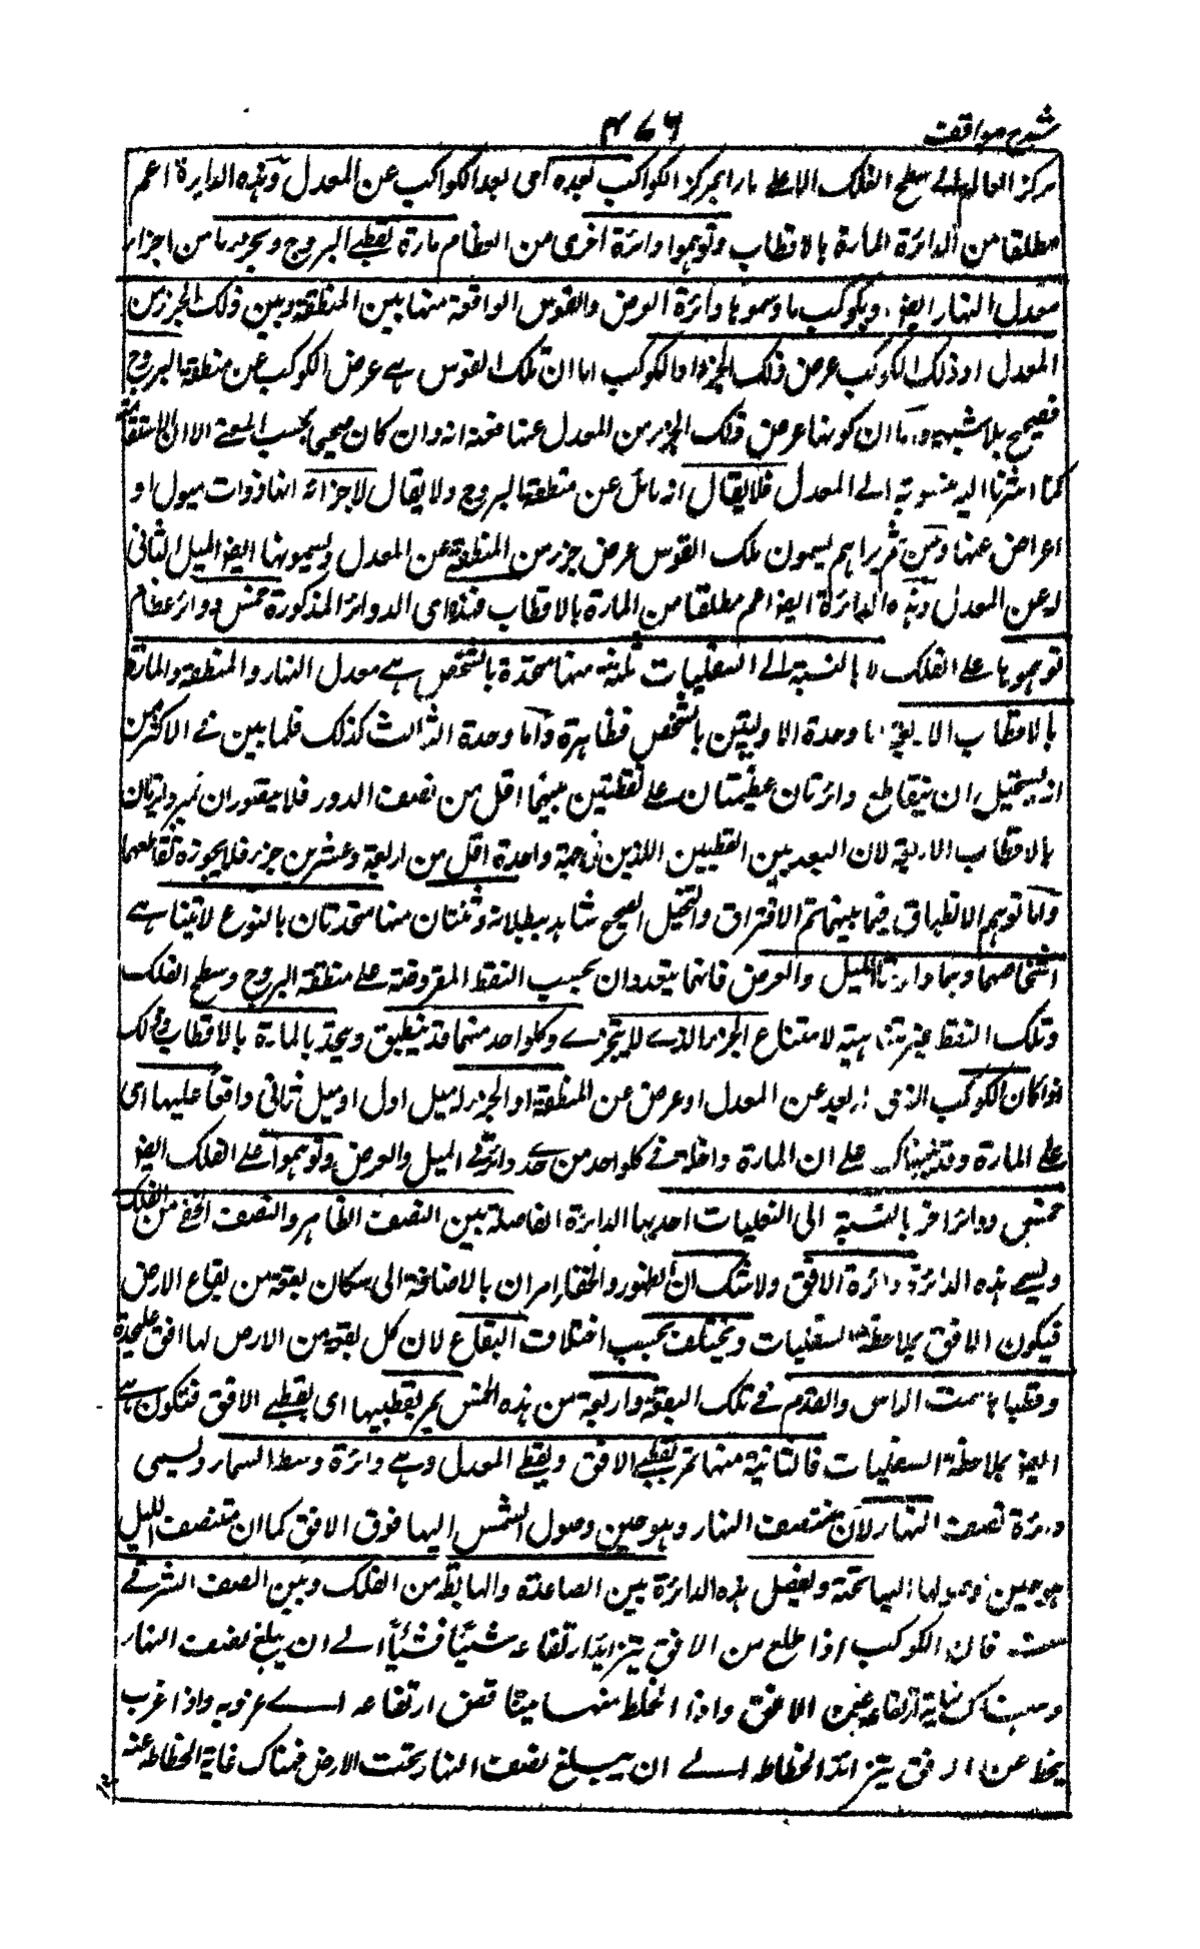 شرح مواقف
٤٧٦
مركز العالم الى سطح الفلك الاعلى مارا بمركز الكواكب بعده اى بعد الكواكب عن المعدل وهذه الدايرة اعم
مطلقا من الدائرة المارة بالاقطاب وتوهموا دائرة اخرى من العظام مارة بقطبى البروج وبجزء ما من اجزاء
معدل النهار ايضا وبكوكب ما وسموها دائرة العرض والقوس الواقعة منها بين المنطقة وبين ذلك الجزء من
المعدل او ذلك الكوكب عرض ذلك الجزء او الكوكب اما ان تلك القوس هے عرض الكوكب عن منطقة البروج
فصحيح بلا شبهة واما ان كونها عرض ذلك الجزء من المعدل عنها فمعناه انه وان كان صحيحا بحسب المعنى الا ان الاستقامة
كما اشرنا اليه منسوبة الى المعدل فلا يقال انه مائل عن منطقة البروج ولا يقال لاجزائه انها ذوات ميول او
اعراض عنها ومن ثم تراهم يسمون تلك القوس عرض جزء من المنطقة عن المعدل ويسمونها ايضا الميل الثانى
له عن المعدل وهذه الدائرة ايضا اعم مطلقا من المارة بالاقطاب فهذه اى الدوائر المذكورة خمس دوائر عظام
توهموها على الفلك لا بالنسبة الى السفليات ثلثة منها متحدة بالشخص هے معدل النهار والمنطقة والمارة
بالاقطاب الاربعة اما وحدة الاوليين بالشخص فظاهرة واما وحدة الثالث كذلك فلما بين فى الاكثر من
انه يستحيل ان يتقاطع دائرتان عظيمتان على نقطتين بينهما اقل من نصف الدور فلا يتصور ان تمر دائرتان
بالاقطاب الاربعة لان البعد بين القطبين اللذين فى جهة واحدة اقل من اربعة وعشرين جزء فلا يجوز تقاطعهما
واما توهم الانطباق فيما بينهما ثم الافتراق والتخيل الصحيح شاهد ببطلانه وثنتان منها متحدتان بالنوع لا تتناهى
اشخاصهما وهما دائرتا الميل والعرض فانهما يتعددان بحسب النقط المفروضة على منطقة البروج وسطح الفلك
وتلك النقط غير متناهية لامتناع الجزء الذى لا يتجزى وكل واحد منهما قد ينطبق ويتحد بالمارة بالاقطاب وذلك
اذا كان الكوكب الذى له بعد عن المعدل او عرض عن المنطقة او الجزء له ميل اول او ميل ثانى واقعا عليها اى
على المارة وقد نبهناك على ان المارة داخلة فى كل واحد من حد دائرتى الميل والعرض وتوهموا على الفلك ايضا
خمس دوائر اخر بالنسبة الى السفليات احديها الدائرة الفاصلة بين النصف الظاهر والنصف الخفى من الفلك
ويسمى هذه الدائرة دائرة الافق ولا شك ان الظهور والخفاء امران بالاضافة الى سكان بقعة من بقاع الارض
فيكون الافق بملاحظة السفليات وتختلف بحسب اختلاف البقاع لان كل بقعة من الارض لها افق علىحدة
وقطباها سمت الراس والقدم فى تلك البقعة واربعة من هذه الخمس يمر بقطبيها اى بقطبى الافق فتكون هى
ايضا بملاحظة السفليات فالثانية منها تمر بقطبى الافق وبقطبى المعدل وهے دائرة وسط السماء ويسمى
دائرة نصف النهار لان منتصف النهار وهو حين وصول الشمس اليها فوق الافق كما ان منتصف الليل
هو حين وصولها اليها تحته ويفصل هذه الدائرة بين الصاعدة والهابط من الفلك وبين النصف الشرقى
منه فان الكوكب اذا طلع من الافق يتزايد ارتفاعه شيئا فشيئا الى ان يبلغ نصف النهار
وهناك غاية ارتفاعه عن الافق واذا انحط منها ميتا قص ارتفاعه الى غروبه واذا غرب
ينحط عن الافق يتزائد انحطاطه الى ان يبلغ نصف النهار تحت الارض فهناك غاية انحطاطه عنه